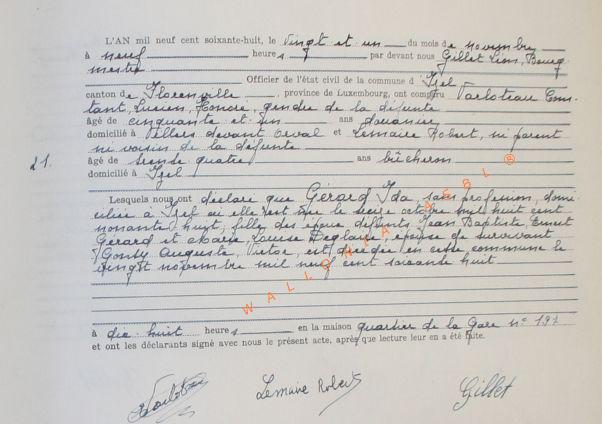 L'AN mil neuf cent soixante-huit, le vingt et un du mois de novembre
à neuf heures, par devant nous Gillet Léon, Bourg
mestre Officier de l'état civil de la commune d'Izel
canton de Florenville, province de Luxembourg, ont comparu Varloteau Cons
tant, Lucien, Honoré, gendre de la défunte
âgé de cinquante et un ans douanier
domicilié à Villers devant Orval et Lemaire Robert, ni parent
ni voisin de la défunte
21. âgé de trente quatre ans bûcheron
domicilié à Izel
Lesquels nous ont déclaré que Gérard Ida, sans profession, domi
ciliée à Izel où elle est née le seize octobre mil huit cent
nonante huit, fille des époux défunts Jean Baptiste, Ernest
Gérard et Marie, Louise Deglaire, épouse de survivant
Gonry Auguste, Victor, est décédée en cette commune le
vingt novembre mil neuf cent soixante huit
à dix-huit heures en la maison quartier de la Gare n° 191
et ont les déclarants signé avec nous le présent acte, après que lecture leur en a été faite.
Lemaire Robert Gillet
WALLONIA ASBL ®